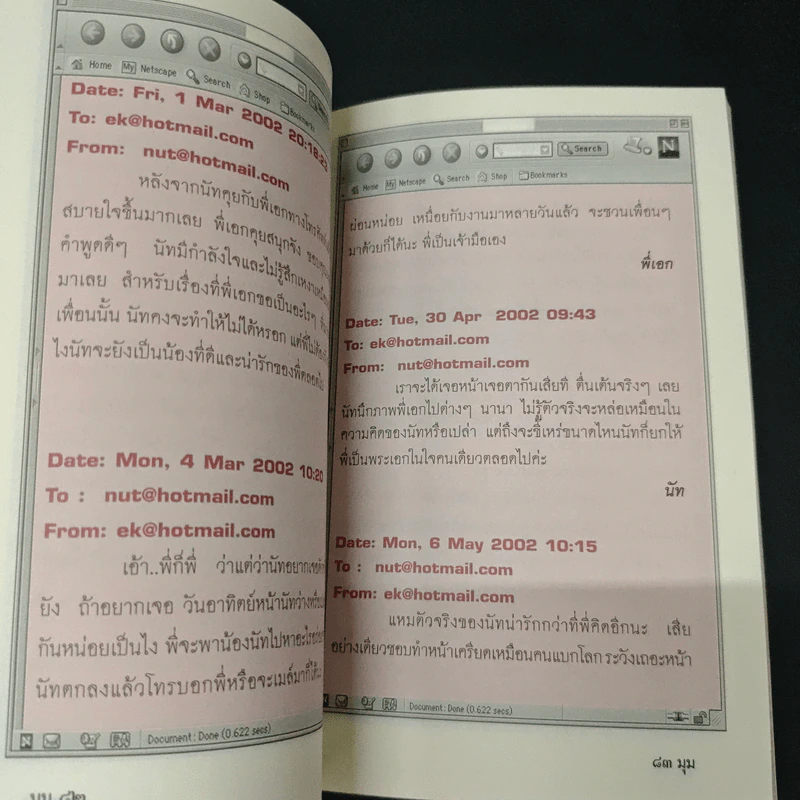 Home My Netscape Search Shop Bookmarks
Date: Fri, 1 Mar 2002 20:18:23
To: ek@hotmail.com
From: nut@hotmail.com
หลังจากนัทคุยกับพี่เอกทางโทรศัพท์
สบายใจขึ้นมากเลย พี่เอกคุยสนุกจัง
คำพูดดีๆ นัทมีกำลังใจและไม่รู้สึกเหงา
มาเลย สำหรับเรื่องที่พี่เอกขอเป็นอะไรๆ
เพื่อนนั้น นัทคงจะทำให้ไม่ได้หรอก แต่พี่ไม่ต้อง
ไงนัทจะยังเป็นน้องที่ดีและน่ารักของพี่ตลอดไป
Date: Mon, 4 Mar 2002 10:20
To : nut@hotmail.com
From: ek@hotmail.com
เอ้า..พี่ก็พี่ ว่าแต่ว่านัทอยากเจอ
ยัง ถ้าอยากเจอ วันอาทิตย์หน้านัทว่าง
กันหน่อยเป็นไง พี่จะพาน้องนัทไปหาอะไร
นัทตกลงแล้วโทรบอกพี่หรือจะเมล์มาก็ได้
Document: Done (0.622 secs)
มุม ๘๒
Search N
Home My Netscape Search Shop Bookmarks
ผ่อนหน่อย เหนื่อยกับงานมาหลายวันแล้ว จะชวนเพื่อนๆ
มาด้วยก็ได้นะ พี่เป็นเจ้ามือเอง
พี่เอก
Date: Tue, 30 Apr 2002 09:43
To: ek@hotmail.com
From: nut@hotmail.com
เราจะได้เจอหน้าเจอตากันเสียที ตื่นเต้นจริงๆ เลย
นัทนึกภาพพี่เอกไปต่างๆ นานา ไม่รู้ตัวจริงจะหล่อเหมือนใน
ความคิดของนัทหรือเปล่า แต่ถึงจะขี้เหร่ขนาดไหนนัทก็ยกให้
พี่เป็นพระเอกในใจคนเดียวตลอดไปค่ะ
นัท
Date: Mon, 6 May 2002 10:15
To : nut@hotmail.com
From: ek@hotmail.com
แหมตัวจริงของนัทน่ารักกว่าที่พี่คิดอีกนะ เสีย
อย่างเดียวชอบทำหน้าเครียดเหมือนคนแบกโลก ระวังเถอะหน้า
Document: Done (0.622 secs)
๘๓ มุม